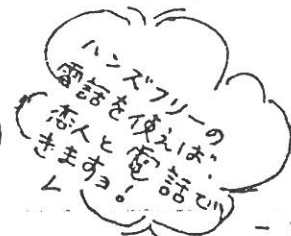 ハンズフリーの
電話を使えば、
恋人と電話で
きますョ!